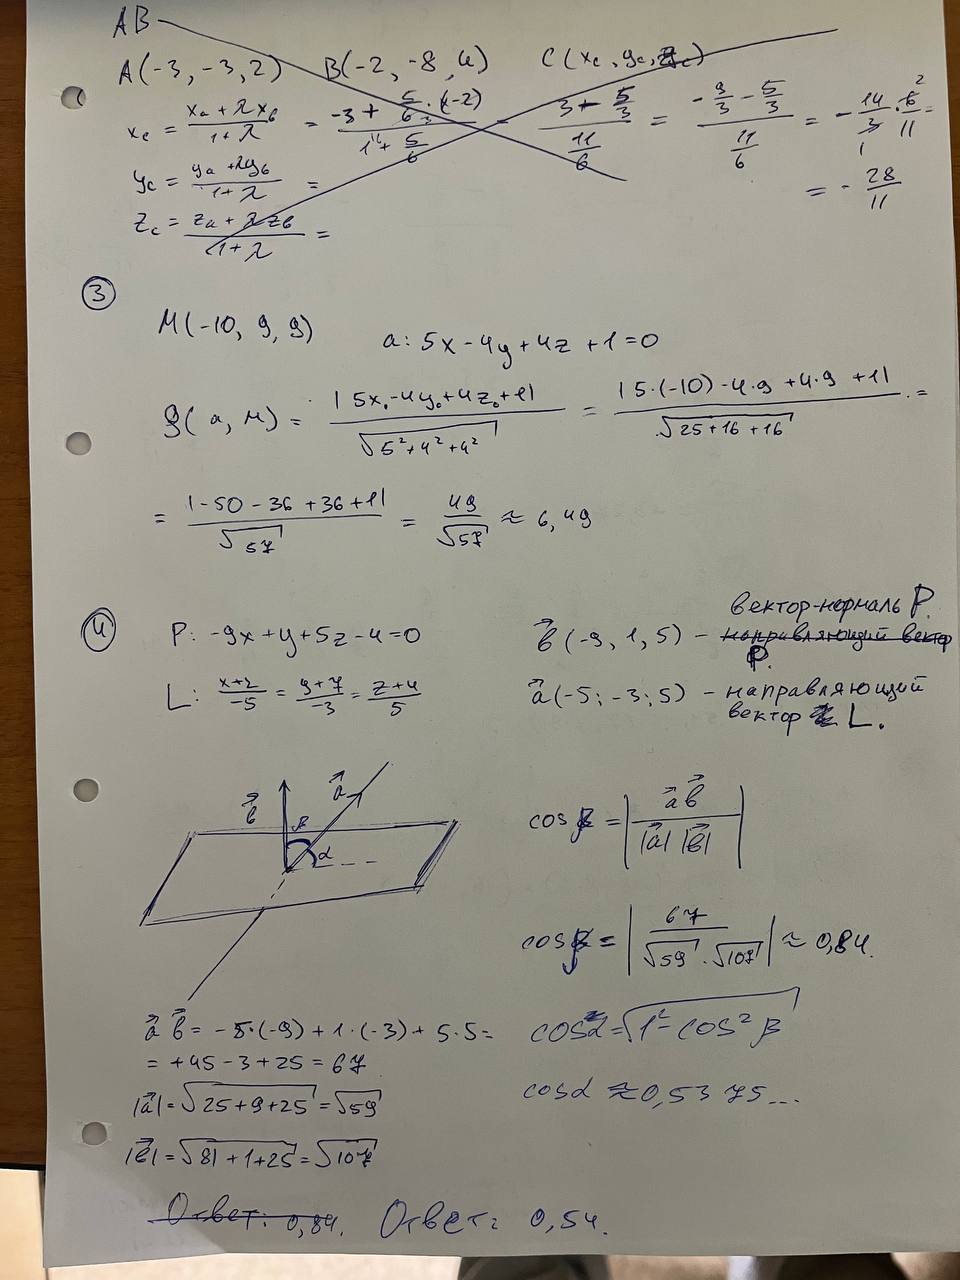 AB
A(-3, -3, 2) B(-2, -8, 4) C(x_c, y_c, z_c)
x_c = (x_a + λx_b)/(1+λ) = (-3 + 5/6·(-2))/(1 + 5/6) = (3 - 5/3)/(11/6) = (-9/3 - 5/3)/(11/6) = -14/3 · 6/11 =
= -28/11
y_c = (y_a + λy_b)/(1+λ) =
z_c = (z_a + λz_b)/(1+λ) =
③
M(-10, 9, 9) a: 5x-4y+4z+1=0
ρ(a, M) = |5x₀-4y₀+4z₀+1|/√(5²+4²+4²) = |5·(-10)-4·9+4·9+1|/√(25+16+16) =
= |-50-36+36+1|/√57 = 49/√57 ≈ 6,49
④
P: -9x+y+5z-4=0
L: (x+2)/-5 = (y+7)/-3 = (z+4)/5
вектор-нормаль P.
b⃗(-9, 1, 5) - направляющий вектор
P.
a⃗(-5; -3; 5) - направляющий
вектор L.
b⃗ β a⃗ α
cos β = |a⃗b⃗/(|a⃗| |b⃗|)|
cos β = |67/(√59 · √107)| ≈ 0,84.
a⃗ b⃗ = -5·(-9)+1·(-3)+5·5=
= +45-3+25=67
|a⃗|=√(25+9+25)=√59
|b⃗|=√(81+1+25)=√107
cosα=√(1²-cos²β)
cosα ≈0,5375...
Ответ: 0,84. Ответ: 0,54.